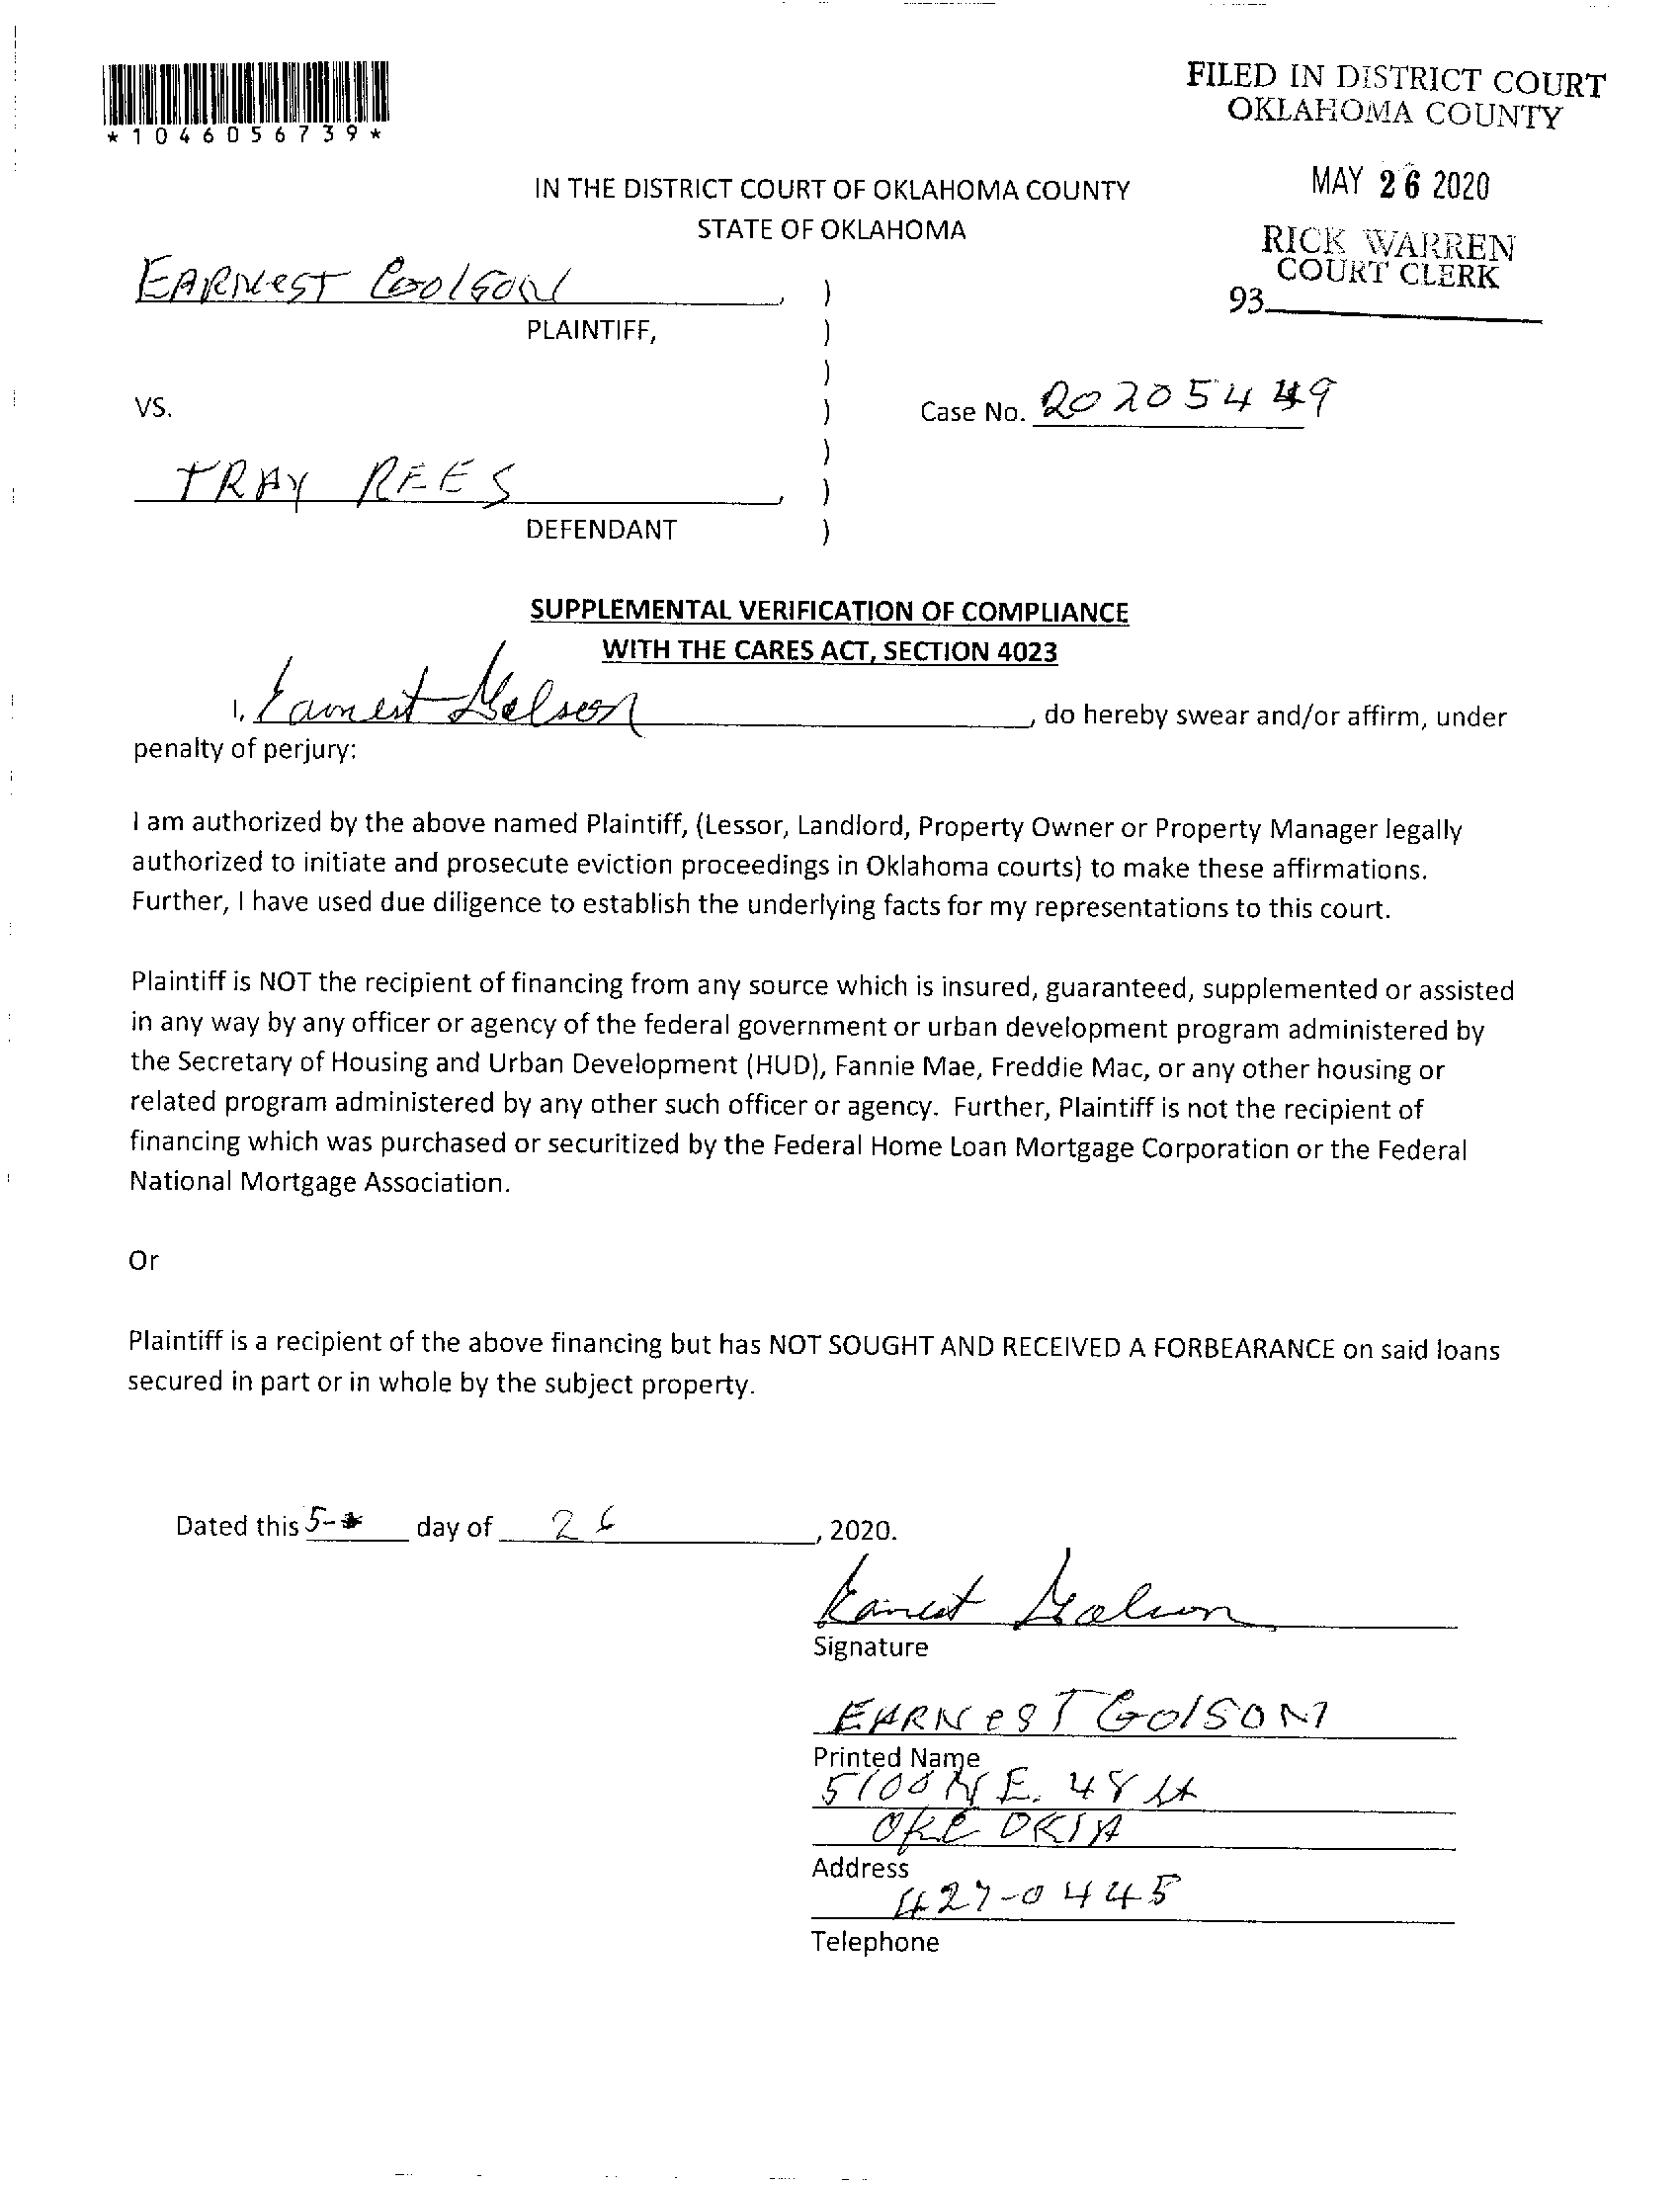 *1046056739*
FILED IN DISTRICT COURT
OKLAHOMA COUNTY
MAY 26 2020
RICK WARREN
COURT CLERK
93
IN THE DISTRICT COURT OF OKLAHOMA COUNTY
STATE OF OKLAHOMA
EARNEST GOLSON ,
PLAINTIFF,
VS.
Case No. 20205449
TRAY REES ,
DEFENDANT
)
)
)
)
)
)
)
SUPPLEMENTAL VERIFICATION OF COMPLIANCE
WITH THE CARES ACT, SECTION 4023
I, Earnest Golson , do hereby swear and/or affirm, under
penalty of perjury:
I am authorized by the above named Plaintiff, (Lessor, Landlord, Property Owner or Property Manager legally
authorized to initiate and prosecute eviction proceedings in Oklahoma courts) to make these affirmations.
Further, I have used due diligence to establish the underlying facts for my representations to this court.
Plaintiff is NOT the recipient of financing from any source which is insured, guaranteed, supplemented or assisted
in any way by any officer or agency of the federal government or urban development program administered by
the Secretary of Housing and Urban Development (HUD), Fannie Mae, Freddie Mac, or any other housing or
related program administered by any other such officer or agency. Further, Plaintiff is not the recipient of
financing which was purchased or securitized by the Federal Home Loan Mortgage Corporation or the Federal
National Mortgage Association.
Or
Plaintiff is a recipient of the above financing but has NOT SOUGHT AND RECEIVED A FORBEARANCE on said loans
secured in part or in whole by the subject property.
Dated this 5- day of 26 , 2020.
Earnest Golson
Signature
EARNEST GOLSON
Printed Name
5100 N E. 48 st
OKC OKLA
Address
427-0445
Telephone